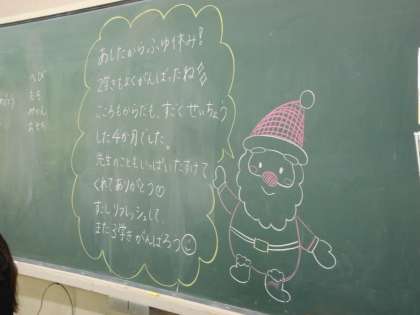 へび
もち
みかん
おせち
あしたからふゆ休み!
2学きもよくがんばったね!!
こころもからだも、すごくせいちょう
した4か月でした。
先生のこともいっぱいたすけて
くれてありがとう
すこしリフレッシュして、
また3学きがんばろう